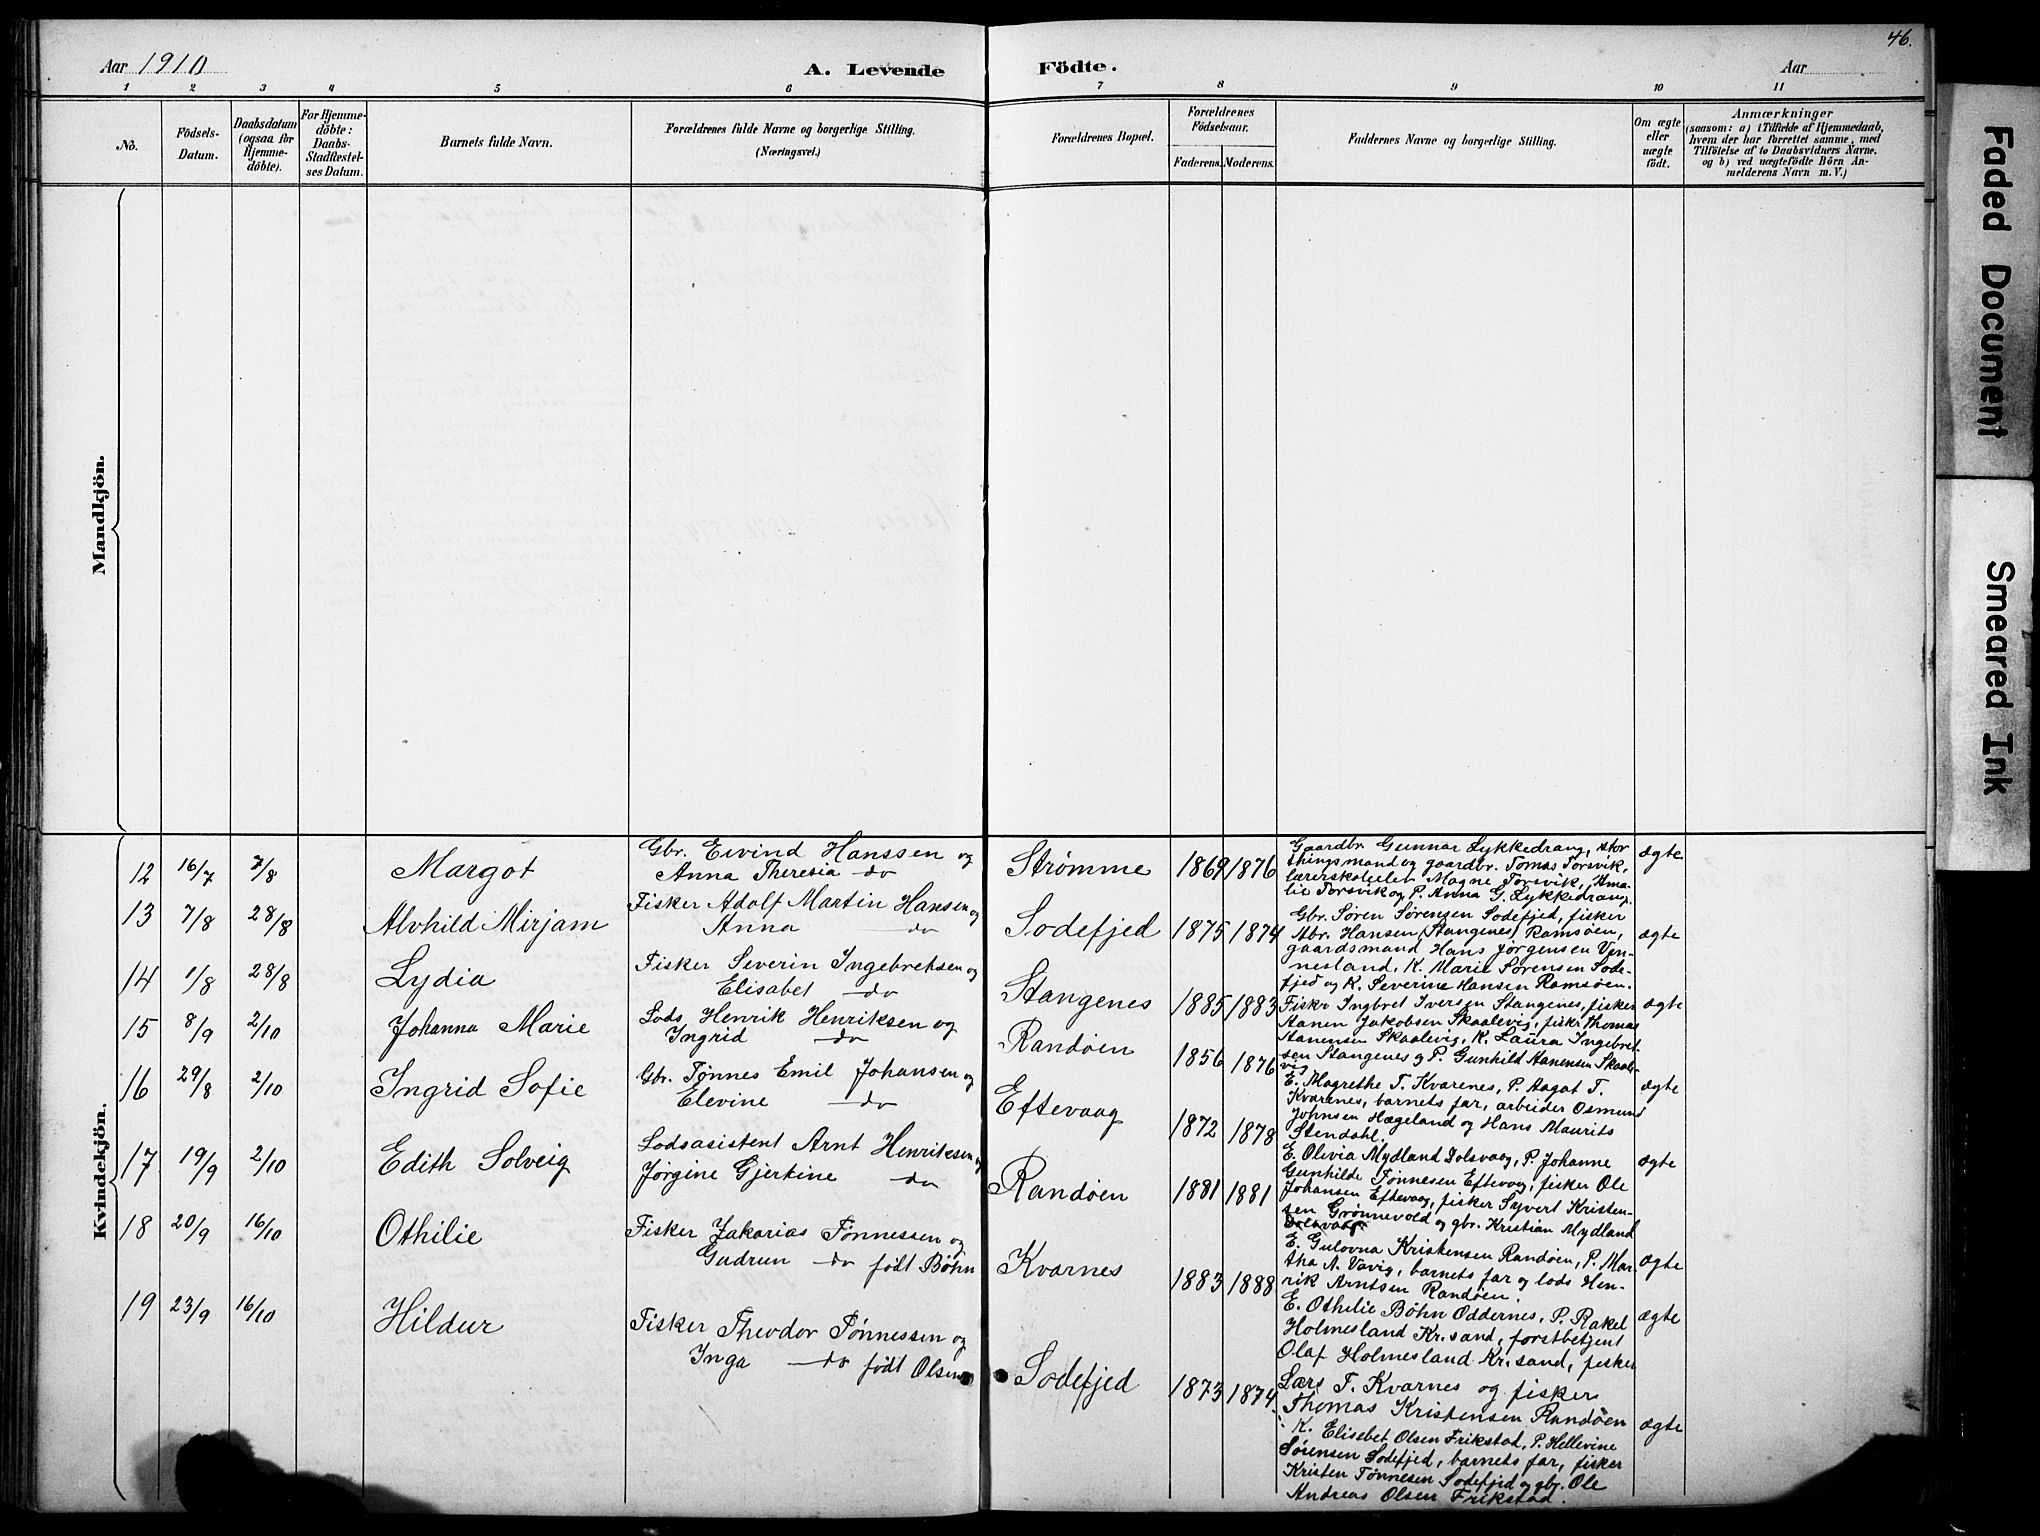 46.
Aar 1910
A. Levende Födte.
Aar
1 2 3 4 5 6 7 8 9 10 11
No.
Födsels-
Datum.
Daabsdatum
(ogsaa for
Hjemme-
döbte).
For Hjemme-
döbte:
Daabs-
Stadfæstel-
ses Datum.
Barnets fulde Navn.
Forældrenes fulde Navne og borgerlige Stilling.
(Næringsvei.)
Forældrenes Bopæl.
Forældrenes
Födselsaar.
Faderens. Moderens.
Faddernes Navne og borgerlige Stilling.
Om ægte
eller
uægte
födt.
Anmærkninger
(saasom: a) i Tilfælde af Hjemmedaab,
hvem der har forrettet samme, med
Tilföielse af to Daabsvidners Navne.
og b) ved uægtefödte Börn An-
melderens Navn m. V.)
Mandkjön.
Kvindekjön.
12 16/7 7/8 Margot
Gbr. Eivind Hanssen og
Anna Theresia do
Strømme 1869 1876
Gaardbr. Gunnar Lykkedrang, stor
thingsmand og gaardbr. Tomas Torsvik,
lærerskoleelev Magne Torsvik, Ama-
lie Torsvik og P. Anna G. Lykkedrang.
ægte
13 7/8 28/8 Alvhild Mirjam
Fisker Adolf Martin Hansen og
Anna do
Sodefjed 1875 1874
Gbr. Søren Sørensen Sodefjed, fisker
Abr. Hansen (Stangenes) Ramsøen,
gaardsmand Hans Jørgensen Ven-
nesland, K. Marie Sørensen Sode-
fjed og K. Severine Hansen Ramsøen.
ægte
14 1/8 28/8 Lydia
Fisker Severin Ingebretsen og
Elisabet do
Stangenes 1885 1883
Fiskr Ingbret Iversen Stangenes, fisker
Aanen Jakobsen Skaalevig, fiskr Thomas
Aanensen Skaalevig, K. Laura Ingebret-
sen Stangenes og P. Gunhild Aanensen Skaale-
vig
ægte
15 8/9 2/10 Johanna Marie
Lods Henrik Henriksen og
Ingrid do
Randøen 1856 1876
E. Magrethe T. Kvarenes, P. Aagot T.
Kvarenes, barnets far, arbeider Osmund
Johnsen Hægeland og Hans Maurits
Stendahl.
ægte
16 29/8 2/10 Ingrid Sofie
Gbr. Tønnes Emil Johansen og
Elevine do
Eftevaag 1872 1878
E. Olivia Mydland Dolsvaag, P. Johanne
Gunhilde Tønnesen Eftevag, fisker Ole
Johansen Eftevaag, fisker Syvert Kristen-
sen Grønnevold og gbr. Kristian Mydland
Dolsvaag.
ægte
17 19/9 2/10 Edith Solveig
Lodsasistent Arnt Henriksen og
Jørgine Gjertine do
Randøen 1881 1881
E. Gulovna Kristensen Randøen, P. Mar-
tha A. Vavig, barnets far og lods Hen-
rik Arntsen Randøen.
ægte
18 20/9 16/10 Othilie
Fisker Zakarias Tønnessen og
Gudrun do født Bøhn
Kvarnes 1883 1888
E. Othilie Bøhn Oddernes, P. Rakel
Holmesland Kr.sand, forstbetjent
Olaf Holmesland Kr.sand, fisker
Lars T. Kvarnes og fisker
Thomas Kristensen Randøen
ægte
19 23/9 16/10 Hildur
Fisker Theodor Tønnessen og
Inga do født Olsen
Sodefjed 1873 1874
K. Elisebet Olsen Frikstad, P. Hellevine
Sørensen Sodefjed, barnets far, fisker
Kristen Tønnesen Sodefjed og gbr. Ole
Andreas Olsen Frikstad.
ægte
Faded Document
Smeared Ink